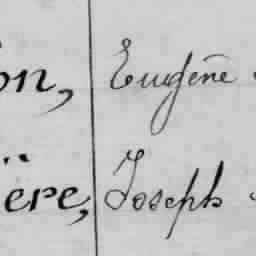 on, Eugène
ère, Joseph